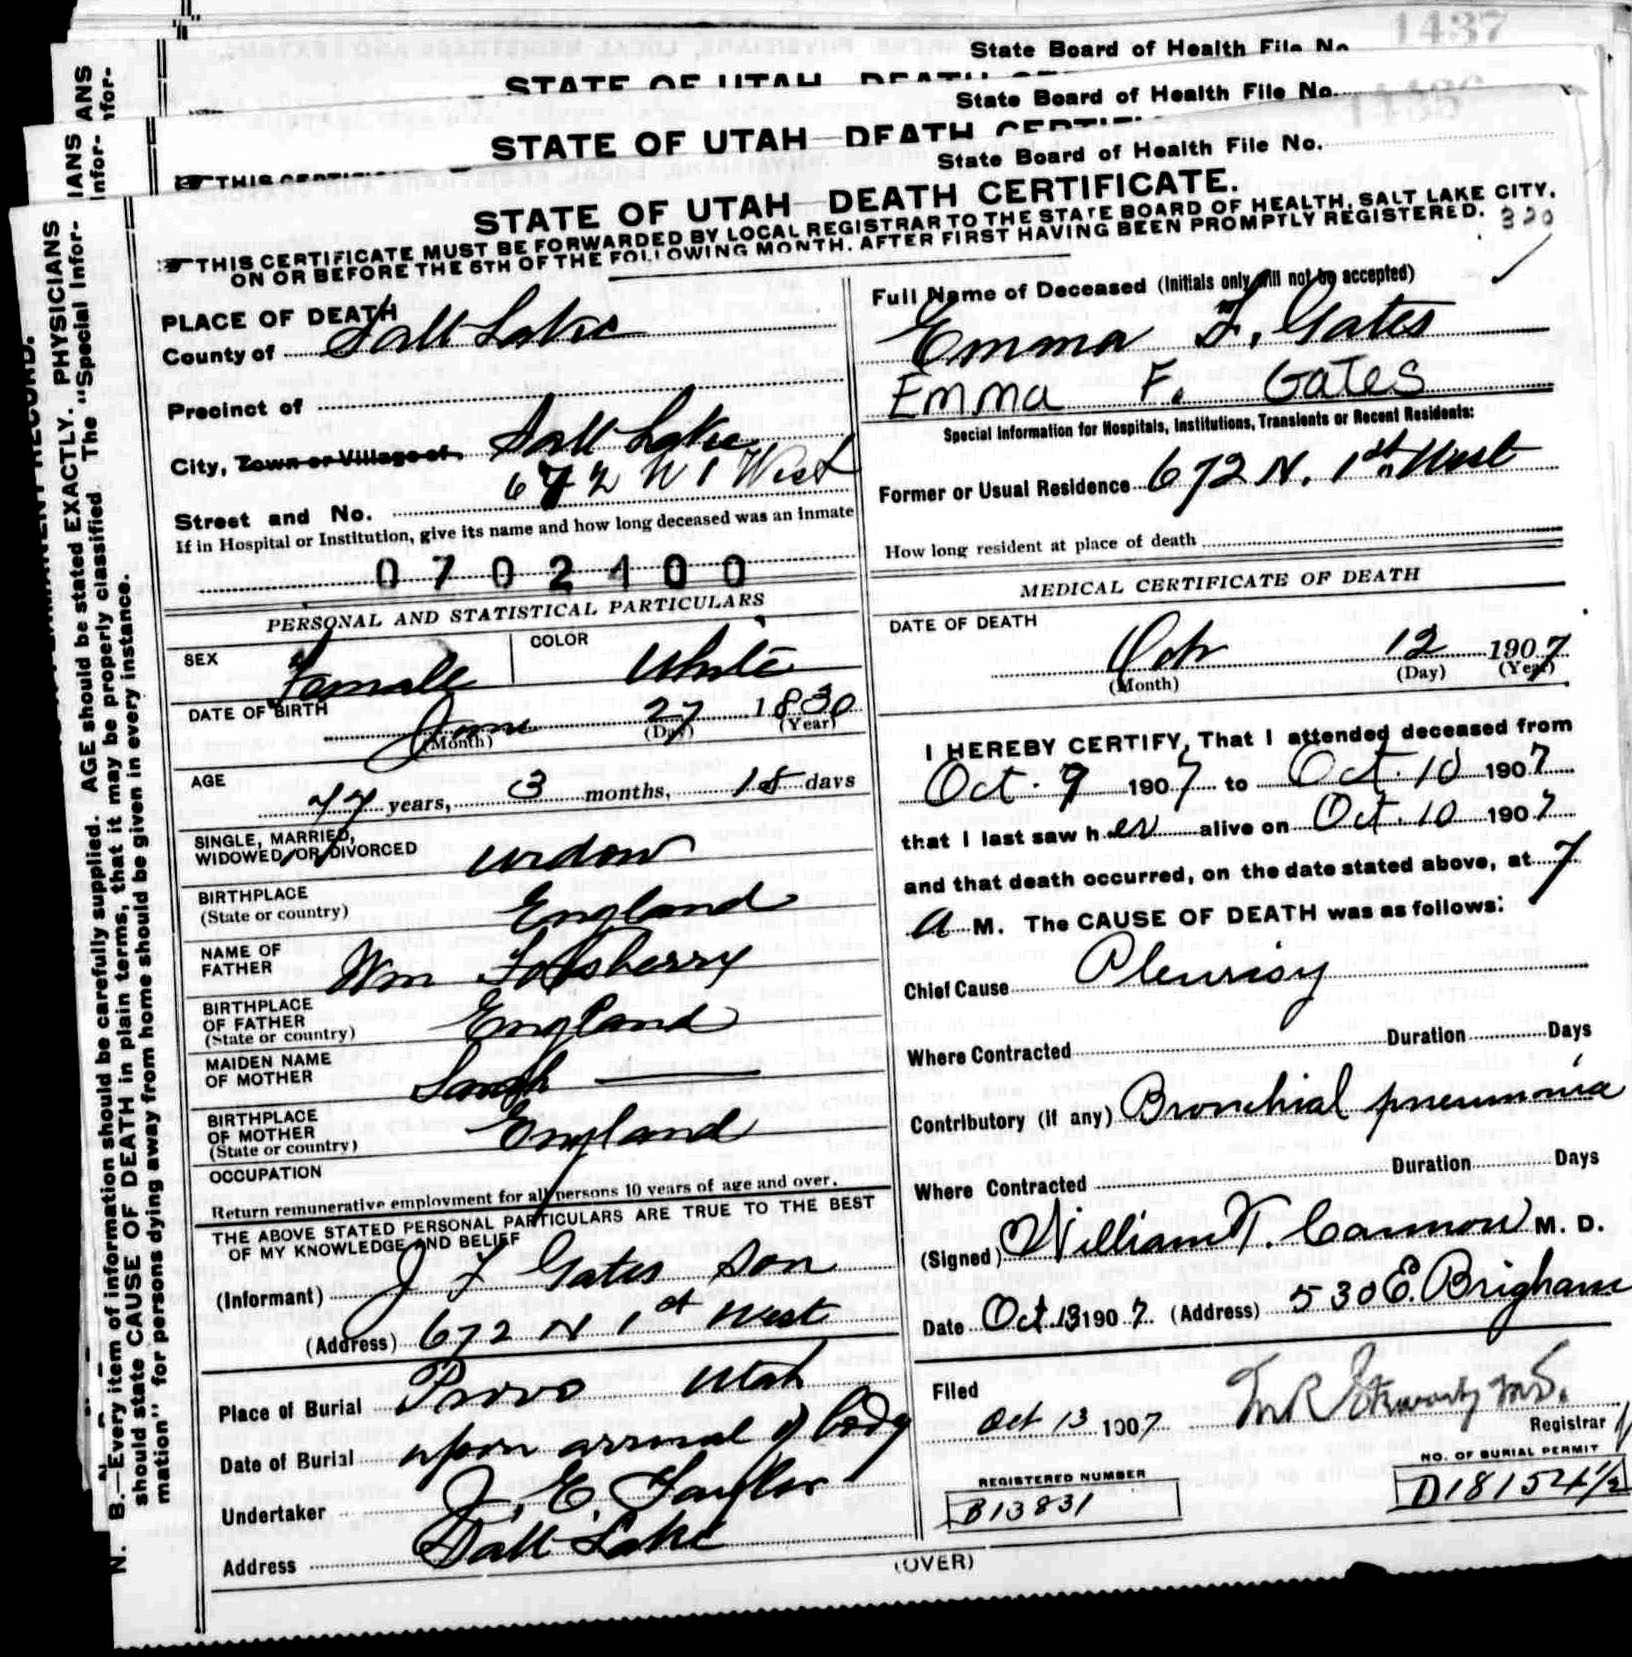 1437
State Board of Health File No.
STATE OF UTAH
State Board of Health File No.
STATE OF UTAH—DEATH CERTIF
State Board of Health File No.
STATE OF UTAH—DEATH CERTIFICATE.
THIS CERTIFICATE MUST BE FORWARDED BY LOCAL REGISTRAR TO THE STATE BOARD OF HEALTH, SALT LAKE CITY,
ON OR BEFORE THE 5TH OF THE FOLLOWING MONTH, AFTER FIRST HAVING BEEN PROMPTLY REGISTERED.
320
N. B.—Every item of information should be carefully supplied. AGE should be stated EXACTLY. PHYSICIANS
should state CAUSE OF DEATH in plain terms, that it may be properly classified The "Special Infor-
mation" for persons dying away from home should be given in every instance.
PLACE OF DEATH
County of Salt Lake
Precinct of
City, Town or Village of, Salt Lake
Street and No. 672 N 1 West
If in Hospital or Institution, give its name and how long deceased was an inmate
0702400
PERSONAL AND STATISTICAL PARTICULARS
SEX Female COLOR White
DATE OF BIRTH 27 1830
(Month) (Day) (Year)
AGE 77 years, 3 months, 15 days
SINGLE, MARRIED,
WIDOWED, OR DIVORCED widow
BIRTHPLACE
(State or country) England
NAME OF
FATHER Wm
BIRTHPLACE
OF FATHER
(State or country) England
MAIDEN NAME
OF MOTHER Sarah
BIRTHPLACE
OF MOTHER
(State or country) England
OCCUPATION
Return remunerative employment for all persons 10 years of age and over.
THE ABOVE STATED PERSONAL PARTICULARS ARE TRUE TO THE BEST
OF MY KNOWLEDGE AND BELIEF
(Informant) J F Gates Son
(Address) 672 N 1st West
Place of Burial Provo Utah
Date of Burial upon arrival of body
Undertaker J. E. Taylor
Address Salt Lake
Full Name of Deceased (Initials only will not be accepted)
Emma F. Gates
Emma F. Gates
Special Information for Hospitals, Institutions, Transients or Recent Residents:
Former or Usual Residence 672 N. 1st West
How long resident at place of death
MEDICAL CERTIFICATE OF DEATH
DATE OF DEATH
Oct 12 1907
(Month) (Day) (Year)
I HEREBY CERTIFY, That I attended deceased from
Oct. 9 1907 to Oct. 10 1907
that I last saw her alive on Oct. 10 1907
and that death occurred, on the date stated above, at 7
a M. The CAUSE OF DEATH was as follows:
Chief Cause Pleurisy
Where Contracted Duration Days
Contributory (if any) Bronchial pneumonia
Where Contracted Duration Days
(Signed) William T. Cannon M. D.
Date Oct 13 1907. (Address) 530 E Brigham
Filed
Oct 13 1907
Registrar
REGISTERED NUMBER
B13831
NO. OF BURIAL PERMIT
D18154½
(OVER)